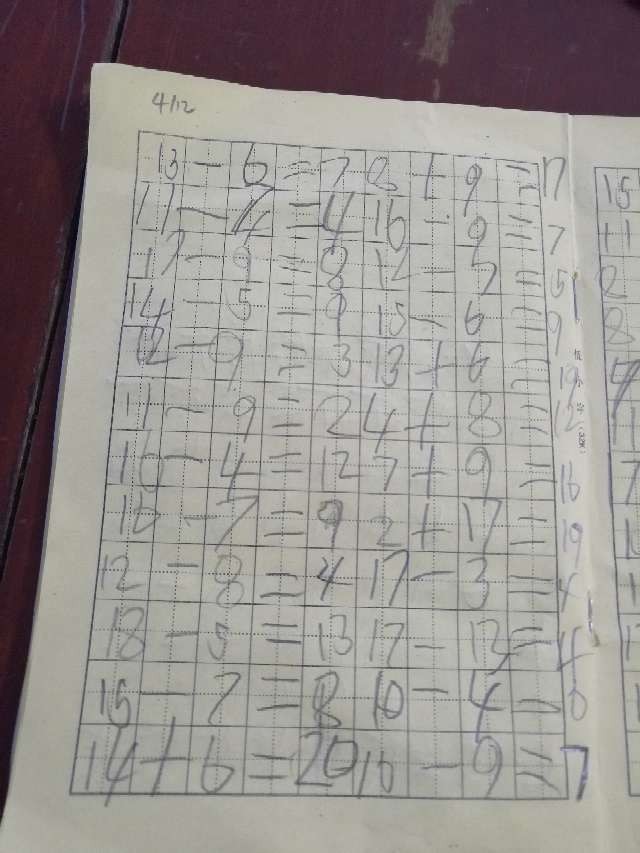 4/12
13-6=7 8+9=17
11-7=4 16-9=7
17-9=8 12-7=5
14-5=9 15-6=9
12-9=3 13+6=19
11-9=2 4+8=12
16-4=12 7+9=16
16-7=9 2+17=19
12-8=4 17-3=4
18-5=13 17-13=4
15-7=8 10-4=6
14+6=20 16-9=7
15
11
2
8
7
1
7
1
1
17
1